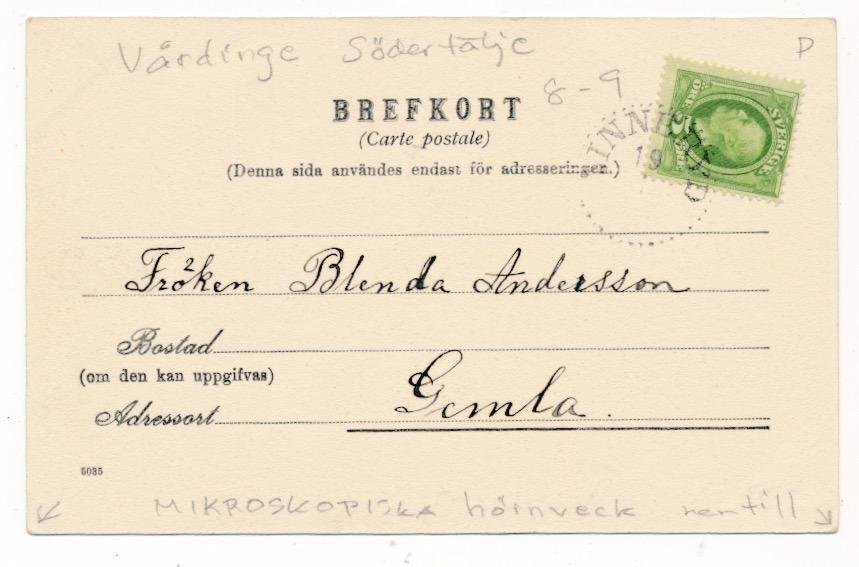 Vårdinge Södertälje P
8-9
BREFKORT
(Carte postale)
(Denna sida användes endast för adresseringen.)
5 ÖRE SVERIGE
19
Fröken Blenda Andersson
Bostad
(om den kan uppgifvas)
Gemla.
Adressort
5035
MIKROSKOPISKA hörnveck nertill